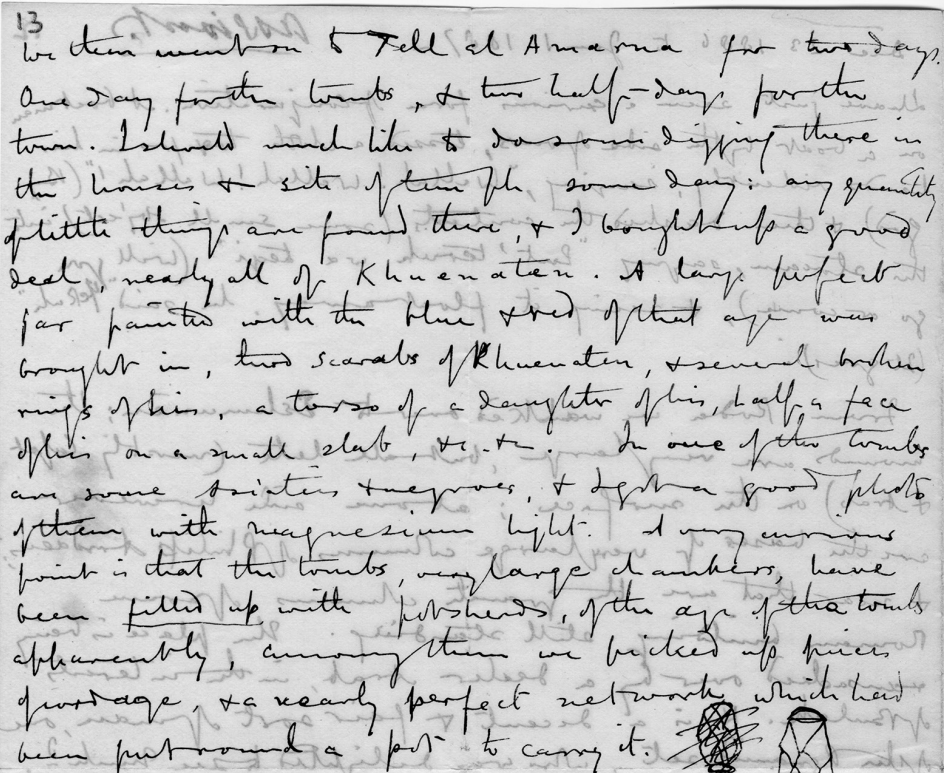 13
We then went on to Tell al Amarna for two days.
One day for the tombs, & two half-days for the
town. I should much like to do some digging there in
the houses & site of temple, some day: any quantity
of little things are found there, & I bought up a good
deal, nearly all of Khuenaten. A large perfect
jar painted with the blue & red of that age was
brought in, two scarabs of Khuenaten, & several broken
rings of his, a torso of a daughter of his, half a face
of his on a small slab, &c. &c. In one of the tombs
are some Asiatics & negroes, & I got a good photo
of them with magnesium light. A very curious
point is that the tombs, very large chambers, have
been filled up with potsherds, of the age of the tombs
apparently, among them we picked up pieces
of cordage, & a nearly perfect network which had
been put round a pot to carry it.